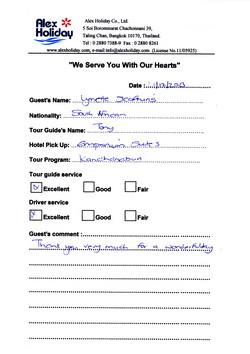 Alex Holiday
Alex Holiday Co., Ltd.
5 Soi Borommarat Chachonnani 39,
Taling Chan, Bangkok 10170, Thailand.
Tel : 0 2880 7388-9 Fax : 0 2880 8261
www.alexholiday.com, e-mail:info@alexholiday.com (License No.11/05925)
"We Serve You With Our Hearts"
Date :
Guest's Name: Lynette
Nationality: South African
Tour Guide's Name: Tony
Hotel Pick Up: Emporium Suites
Tour Program: Kanchanaburi
Tour guide service
Excellent Good Fair
Driver service
Excellent Good Fair
Guest's comment :
Thank you very much for a wonderful day